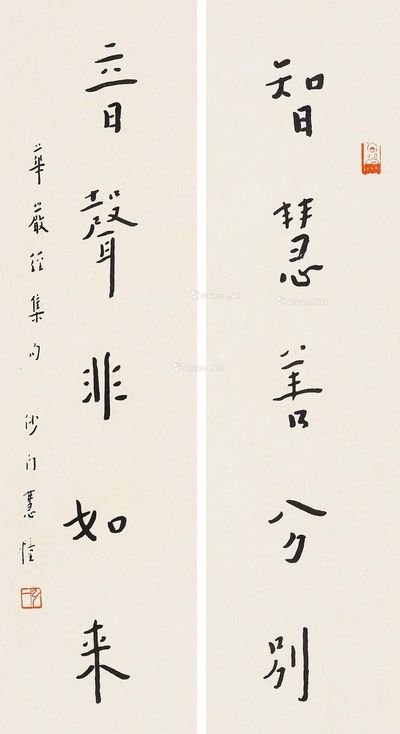 智慧善分別
音聲非如来
華嚴經集句
沙門慧